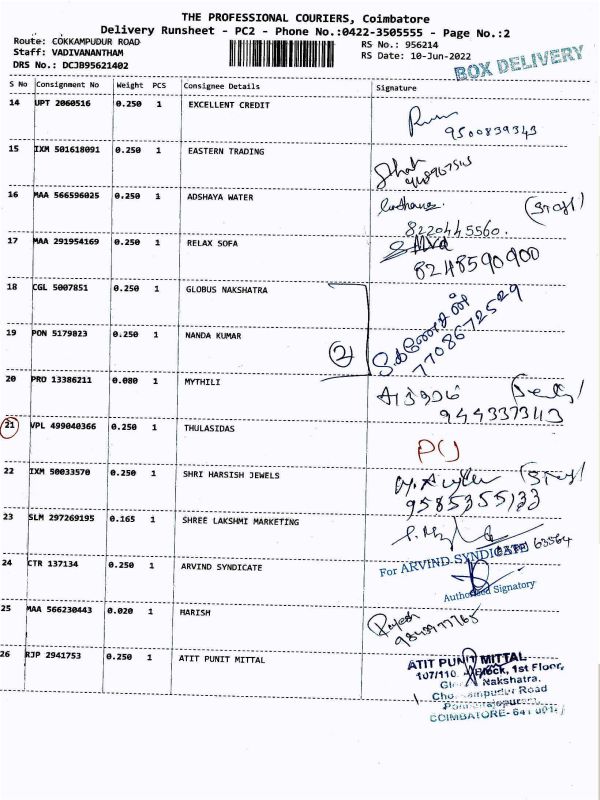 THE PROFESSIONAL COURIERS, Coimbatore
Delivery Runsheet - PC2 - Phone No.:0422-3505555 - Page No.:2
Route: COKKAMPUDUR ROAD RS No.: 956214
Staff: VADIVANANTHAM RS Date: 10-Jun-2022
DRS No.: DCJB95621402
BOX DELIVERY
S No Consignment No Weight PCS Consignee Details Signature
14 UPT 2060516 0.250 1 EXCELLENT CREDIT
9500839343
15 IXM 501618091 0.250 1 EASTERN TRADING
16 MAA 566596025 0.250 1 ADSHAYA WATER
8220445560.
17 MAA 291954169 0.250 1 RELAX SOFA
8248590900
18 CGL 5007851 0.250 1 GLOBUS NAKSHATRA
19 PON 5179823 0.250 1 NANDA KUMAR
2
7708672529
20 PRO 13386211 0.080 1 MYTHILI
21 VPL 499040366 0.250 1 THULASIDAS
22 IXM 50033570 0.250 1 SHRI HARSISH JEWELS
9585355133
23 SLM 297269195 0.165 1 SHREE LAKSHMI MARKETING
24 CTR 137134 0.250 1 ARVIND SYNDICATE
For ARVIND SYNDICATE
Authorised Signatory
25 MAA 566230443 0.020 1 HARISH
Rajesh
26 RJP 2941753 0.250 1 ATIT PUNIT MITTAL
ATIT PUNIT MITTAL
107/110. Block, 1st Floor,
Nakshatra,
Road
COIMBATORE-